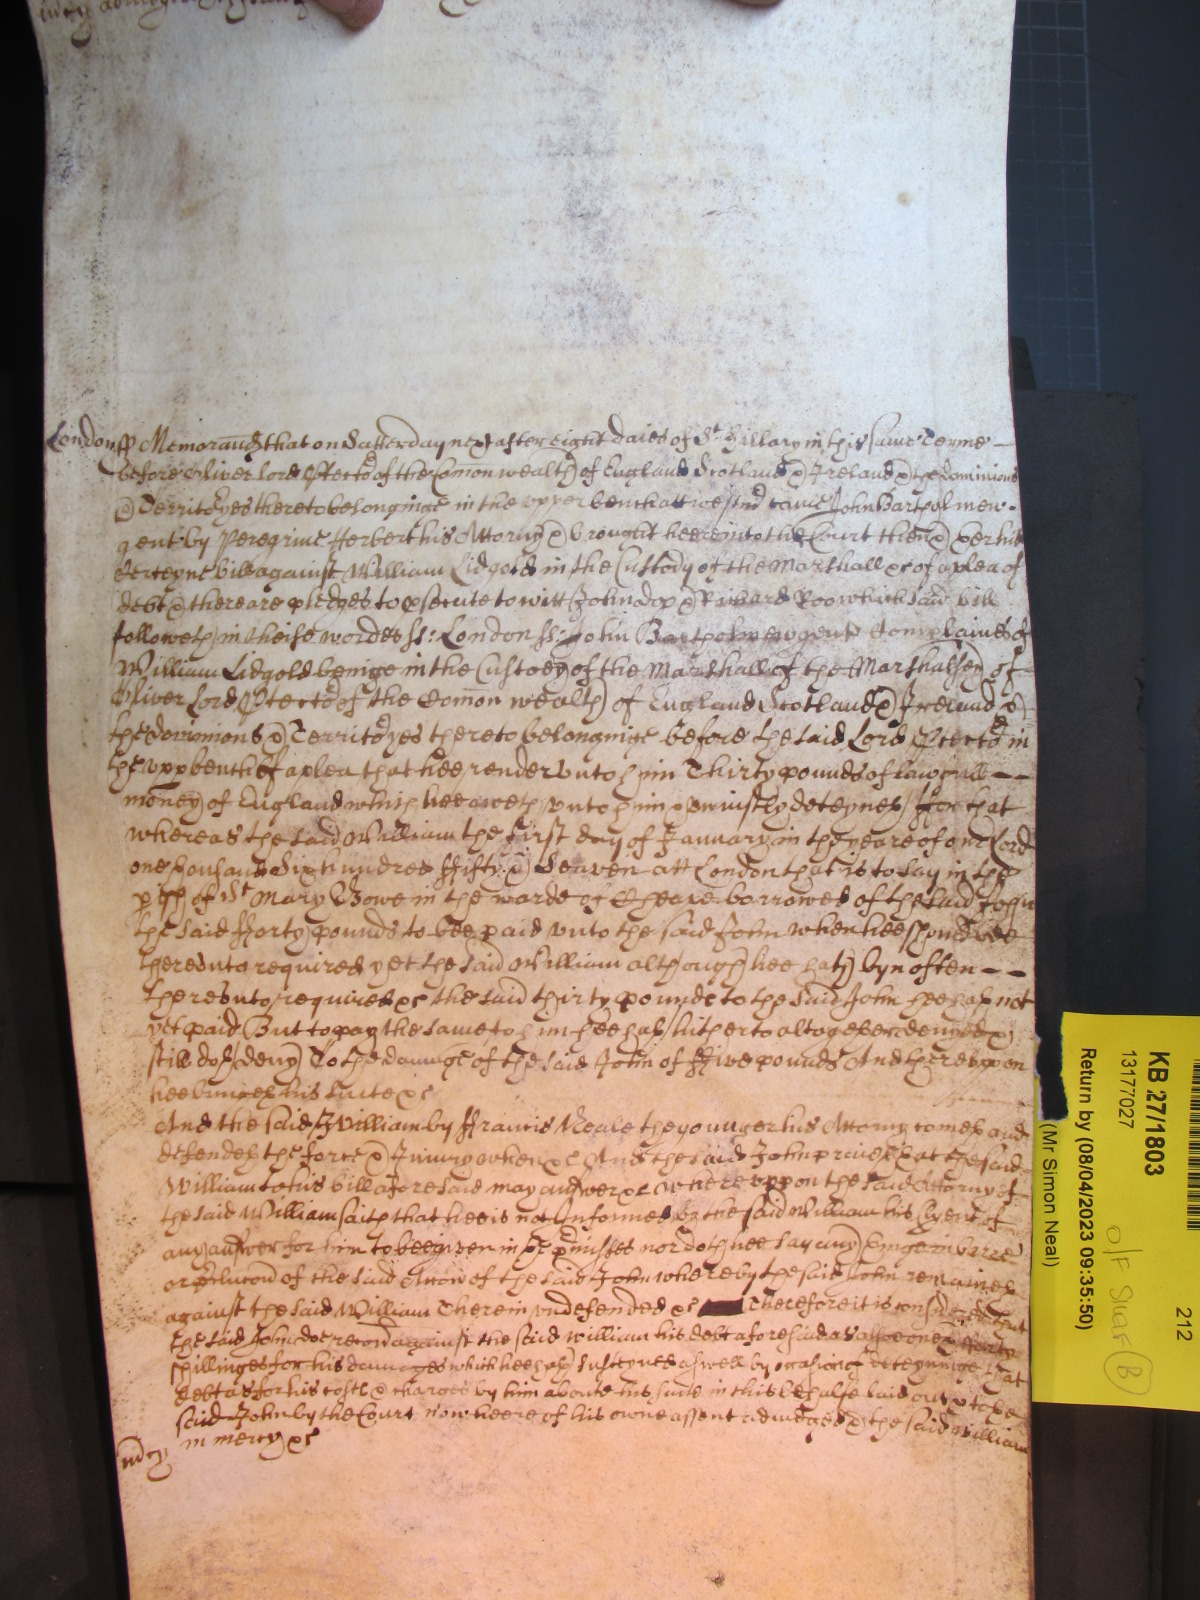 London ss Memorand that on Satterday next after eight daies of St. Hillary in this same Terme
before Oliver Lord Protector of the Comon wealth of England Scotland & Ireland & the dominions
& Territoyes thereto belonginge in the upper bench att westmr came John Bartholmew
gent by Peregrine Herbert his Attorny & brought heere into the Court then & there his
certeyne bill against William Lidgold in the Custody of the Marshall &c of a plea of
debt & there are pledges to prosecute to witt John doo & Richard Roo which said bill
followeth in theise wordes ss: London ss: John Bartholmew gent Complaines of
William Lidgold beinge in the Custody of the Marshall of the Marshalsey of
Oliver Lord Protector of the Comon wealth of England Scotland & Ireland &
the dominions & Territoyes thereto belonginge before the said Lord Protector in
the upp bench of a plea that hee render unto him Thirty pounds of lawfull
money of England which hee oweth unto him & uniustly deteyneth For that
whereas the said William the first day of January in the yeare of our Lord
one thousand Six hundred ffifty & Seaven att London that is to say in the
pish of St Mary Bowe in the warde of Cheape borrowed of the said John
the said fforty pounds to bee paid unto the said John when hee should bee
thereunto required yet the said William although hee hath byn often
thereunto required &c the said thirty pounds to the said John hee hath not
yet paid But to pay the same to him hee hath hitherto altogether denyed &
still doth deny To the damage of the said John of ffive pounds And thereupon
hee bringeth his suite &c
And the said William by ffrancis Neale the younger his Attorny cometh and
defendeth the force & Iniury when &c And the said John praieth that the said
William to his bill aforesaid may answer &c whereuppon the said Attorny of
the said William saith that hee is not Informed by the said William his Clyent of
any answer for him to bee given in the premisses nor doth hee say any thinge in barre
or preclucon of the said Accon of the said John whereby the said John remaineth
against the said William Therein undefended &c Therefore it is considered that
the said John doe recover against the said William his debt aforesaid as alsoe
shillinges for his damages which hee hath susteyned aswell by occasion of deteyninge that
debt as for his costs & charges by him about his suite in this behalfe laid out to the
said John by the Court now heere of his owne assent adiudged & the said William
in mercy &c
KB 27/1803
13177027
Return by (08/04/2023 09:35:50)
(Mr Simon Neal)
212
O/F
(B)